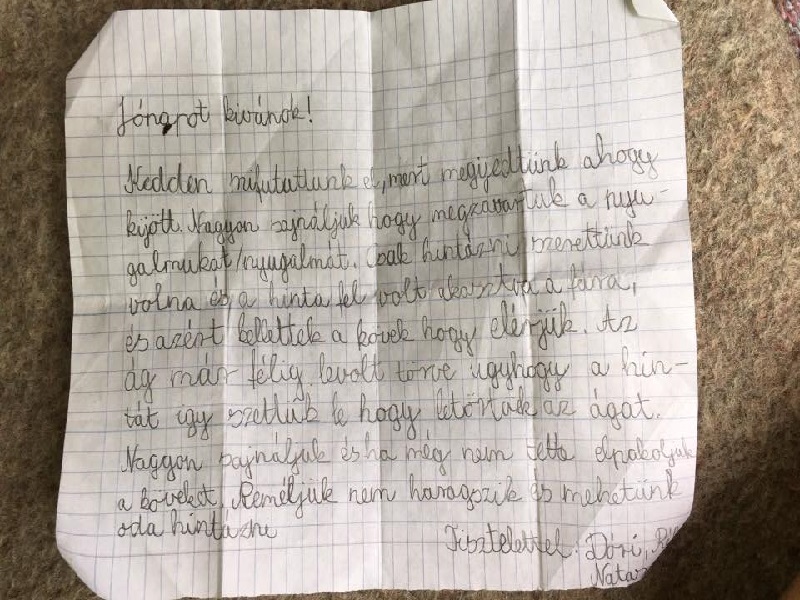 Jónapot kivánok!
Kedden mifutattunk el, mert megijedtünk ahogy
kijött. Nagyon sajnáljuk hogy megzavartuk a nyu-
galmukat/nyugalmát. Csak hintázni szerettünk
volna és a hinta fel volt akasztva a fára,
és azért kellettek a kövek hogy elérjük. Az
ág már félig levolt törve úgyhogy a hin-
tát így szettük le hogy letörtük az ágat.
Nagyon sajnáljuk és ha még nem tette elpakoljuk
a köveket. Reméljük nem haragszik és mehetünk
oda hintázni
Tisztelettel: Dóri,